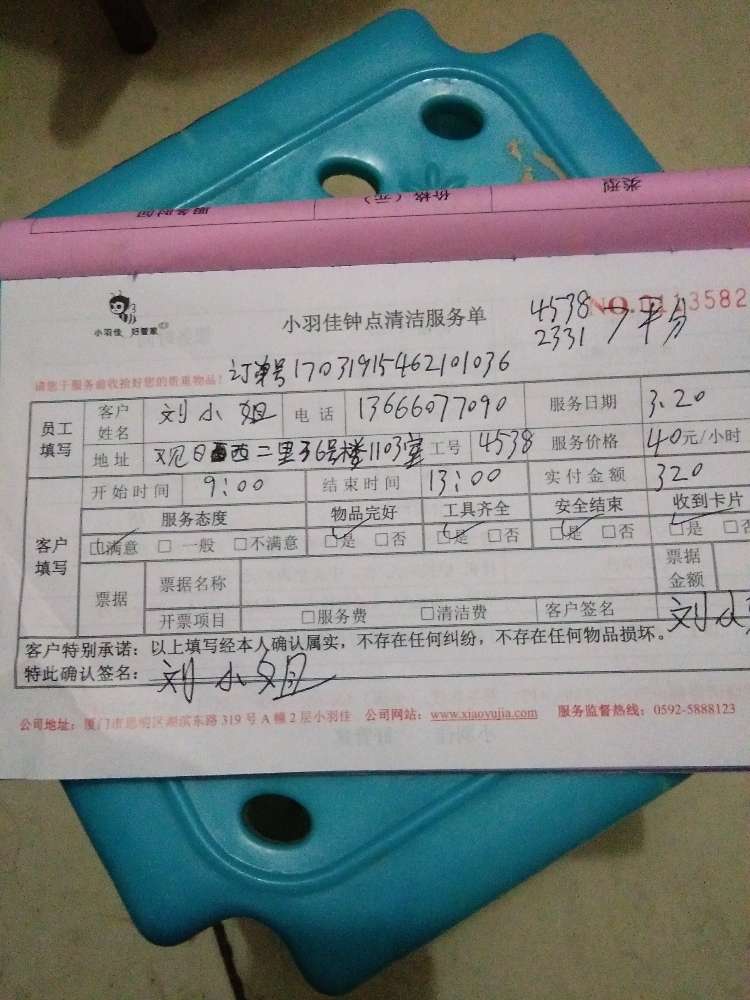 类型 价格（元） 服务时间
小羽佳 好管家
小羽佳钟点清洁服务单
4538 平分
2331
NO. 3582
请您于服务前收捡好您的贵重物品！
订单号17031915462101036
员工填写 客户姓名 刘小姐 电话 13666077090 服务日期 3.20
地址 观日西二里36号楼1103室 工号 4538 服务价格 40元/小时
客户填写 开始时间 9:00 结束时间 13:00 实付金额 320
服务态度 物品完好 工具齐全 安全结束 收到卡片
☑满意 □一般 □不满意 ☑是 □否 ☑是 □否 ☑是 □否 ☑是 □否
票据 票据名称 票据金额
开票项目 □服务费 □清洁费 客户签名 刘小
客户特别承诺：以上填写经本人确认属实，不存在任何纠纷，不存在任何物品损坏。
特此确认签名：刘小姐
公司地址：厦门市思明区湖滨东路 319 号 A 幢 2 层小羽佳 公司网站：www.xiaoyujia.com 服务监督热线：0592-5888123